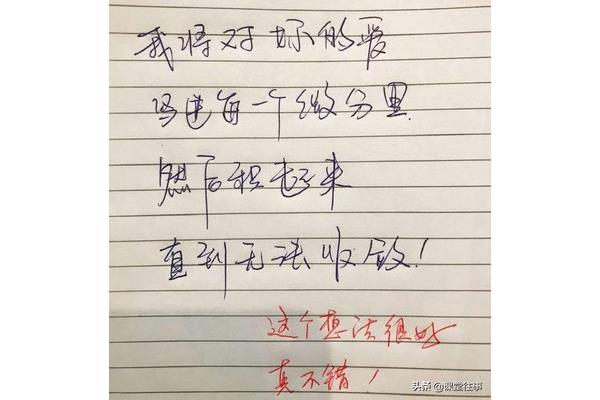 我将对你的爱
写进每一个微分里
然后积起来
直到无法收敛！
这个想法很好
真不错！
头条 @课堂往事